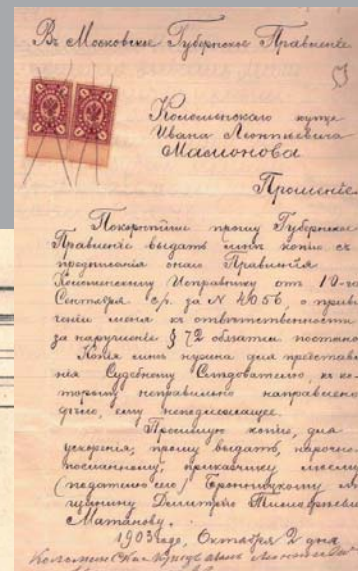 Въ Московское Губернское Правленіе
Коломенскаго купца
Ивана Леонтьевича
Прошеніе
Покорнѣйше прошу Губернское
Правленіе выдать мнѣ копію съ
предписанія онаго Правленія
Коломенскому Исправнику отъ 10-го
Сентября с/г. за № 4056, о привле
ченіи меня къ отвѣтственности
за нарушеніе § 72 обязател. постано
Копія мнѣ нужна для представле
нія Судебному Слѣдователю, къ ко
торому неправильно направлено
дѣло, ему неподлежащее.
Просимую копію, для
ускоренія, прошу выдать, нарочно
посланному, прикащику моему
(подателю сего) Бронницкому мѣ
щанину Дмитрію
1903 года, Октября 2 дня
Коломенскій Купецъ Иванъ